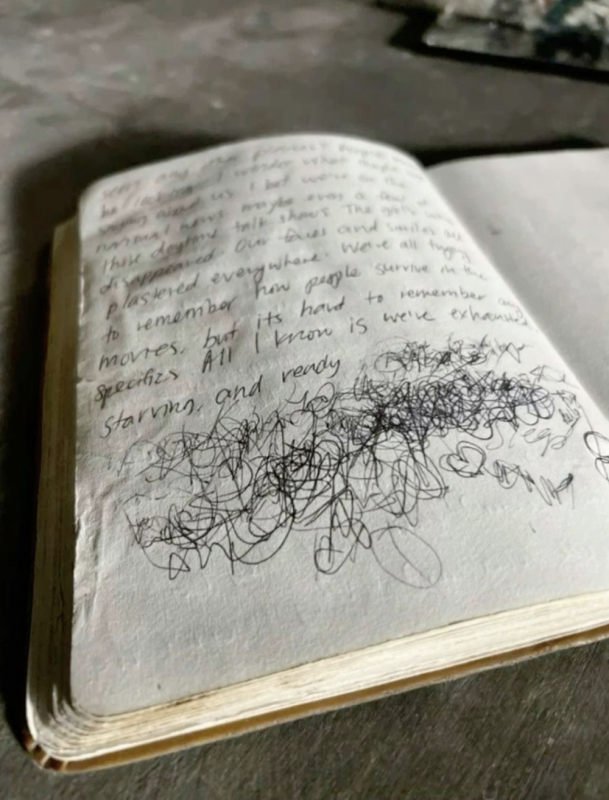 be I wonder what
us. I bet we're on the
normal news maybe even a few of
those daytime talk shows. The girls who
disappeared. Our faces and smiles are
plastered everywhere. We're all trying
to remember how people survive in the
movies, but its hard to remember any
specifics. All I know is we've exhausted,
starving, and ready